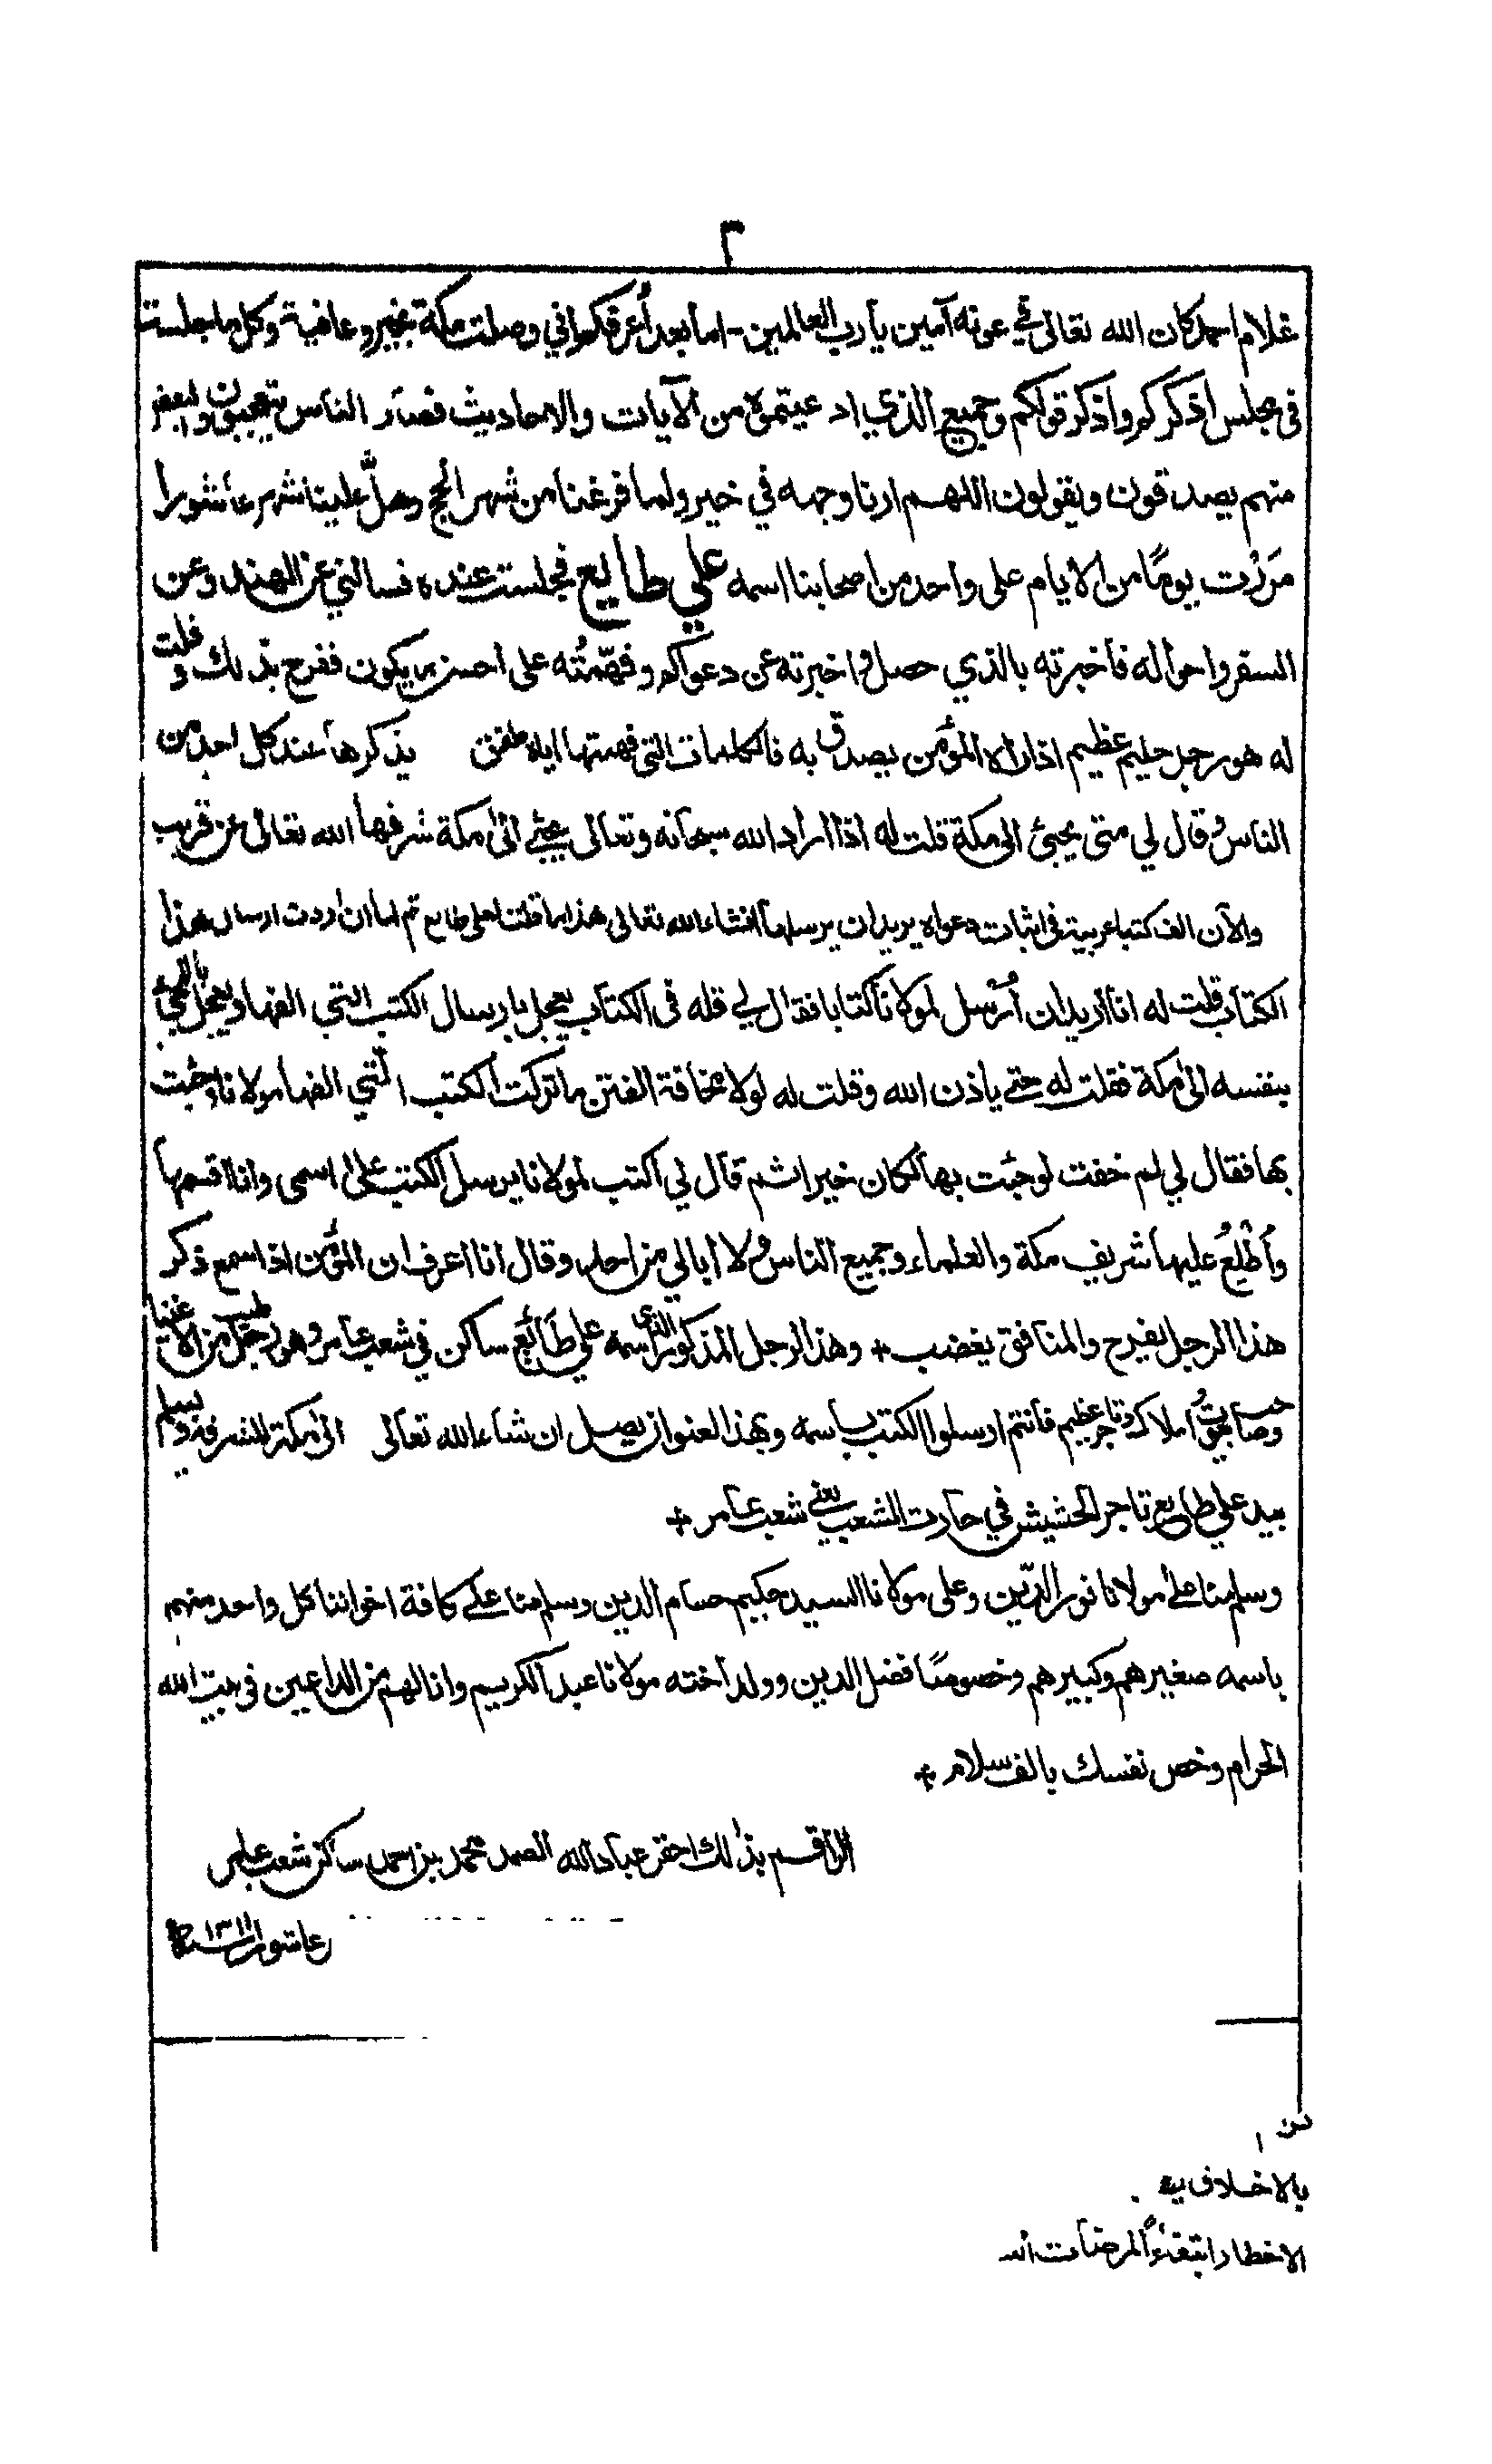 ٢
غلام احمد كان الله تعالى في عونه آمين يا رب العالمين - اما بعد أعرفكم اني وصلت مكة بخير وعافية وكل ما جلست
في مجلس اذكركم واذكر قولكم وجميع الذي ادعيتموه من الآيات والاحاديث فصار الناس يتعجبون والبعض
منهم يصدقون ويقولون اللهم ارنا وجهه في خير ولما فرغنا من شهر الحج وهلّ علينا شهر عاشورا
مَرَرْت يومًا من الايام على واحد من اصحابنا اسمه علي طايع فجلست عنده فسالني عن الهند وعن
السفر واحواله فاخبرته بالذي حصل واخبرته عن دعواكم وفهّمتُه على احسن ما يكون ففرح بذلك وقلت
له هو رجل حليم عظيم اذا راه المؤمن يصدق به فالكلمات التي فهمتها اياه طفق يذكرها عند كل احد من
الناس وقال لي متى يجيئ الى مكة قلت له اذا اراد الله سبحانه وتعالى يجيئ الى مكة شرفها الله تعالى عن قريب
والآن الف كتبا عربية في اثبات دعواه يريد ان يرسلها انشاء الله تعالى هذا ما قلت لعلي طايع ثم لما ان اردت ارسال هذا
الكتاب قلت له انا اريد ان أُرسل لمولانا كتابا فقال لي قله في الكتاب يعجل بارسال الكتب التي الفها ويعجل بالمجيئ
بنفسه الى مكة فقلت له حتى ياذن الله وقلت له لولا مخافة الفتن ما تركت الكتب التي الفها مولانا وجئت
بها فقال لي لم خفت لو جئت بها لكان خيرا ثم قال لي اكتب لمولانا يرسل الكتب على اسمي وانا اقسمها
وأُطْلِعُ عليها شريف مكة والعلماء وجميع الناس ولا ابالي من احد وقال انا اعرف ان المؤمن اذا سمع ذكر
هذا الرجل يفرح والمنافق يغضب + وهذا الرجل المذكور الذي اسمه علي طَائِع ساكن في شعب عامر وهو رجل طيب من الاغنيا
وصاحب بيوت واملاك وتاجر عظيم فانتم ارسلوا الكتب باسمه وبهذا العنوان يصل ان شاء الله تعالى الى مكة المشرفة ويسلم
بيد علي طايع تاجر الحشيش في حارت الشعب يعني شعب عامر +
وسلم منا على مولانا نور الدّين وعلى مولانا السيد حكيم حسام الدين وسلم منا على كافة اخواننا كل واحد منهم
باسمه صغيرهم وكبيرهم وخصوصًا فضل الدين وولد اخته مولانا عبد الكريم وانا لهم من الداعين في بيت الله
الحرام وخص نفسك بالف سلام +
الراقم بذٰلك احقر عباد الله الصمد محمد بن احمد ساكن شعب عامر
عاشورا سنة ١٣١١
بالاخلاف
الاخطار ابتغاءً لمرضات الله